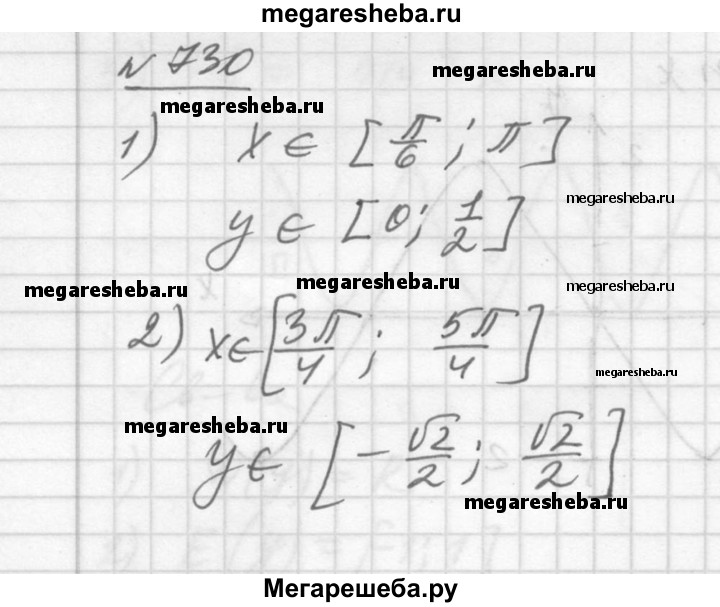 megaresheba.ru
N 730
megaresheba.ru
megaresheba.ru
1) x ∈ [π/6; π]
megaresheba.ru
y ∈ [0; 1/2]
megaresheba.ru
megaresheba.ru
megaresheba.ru
2) x ∈ [3π/4; 5π/4]
megaresheba.ru
megaresheba.ru
y ∈ [-√2/2; √2/2]
megaresheba.ru
Мегарешеба.ру